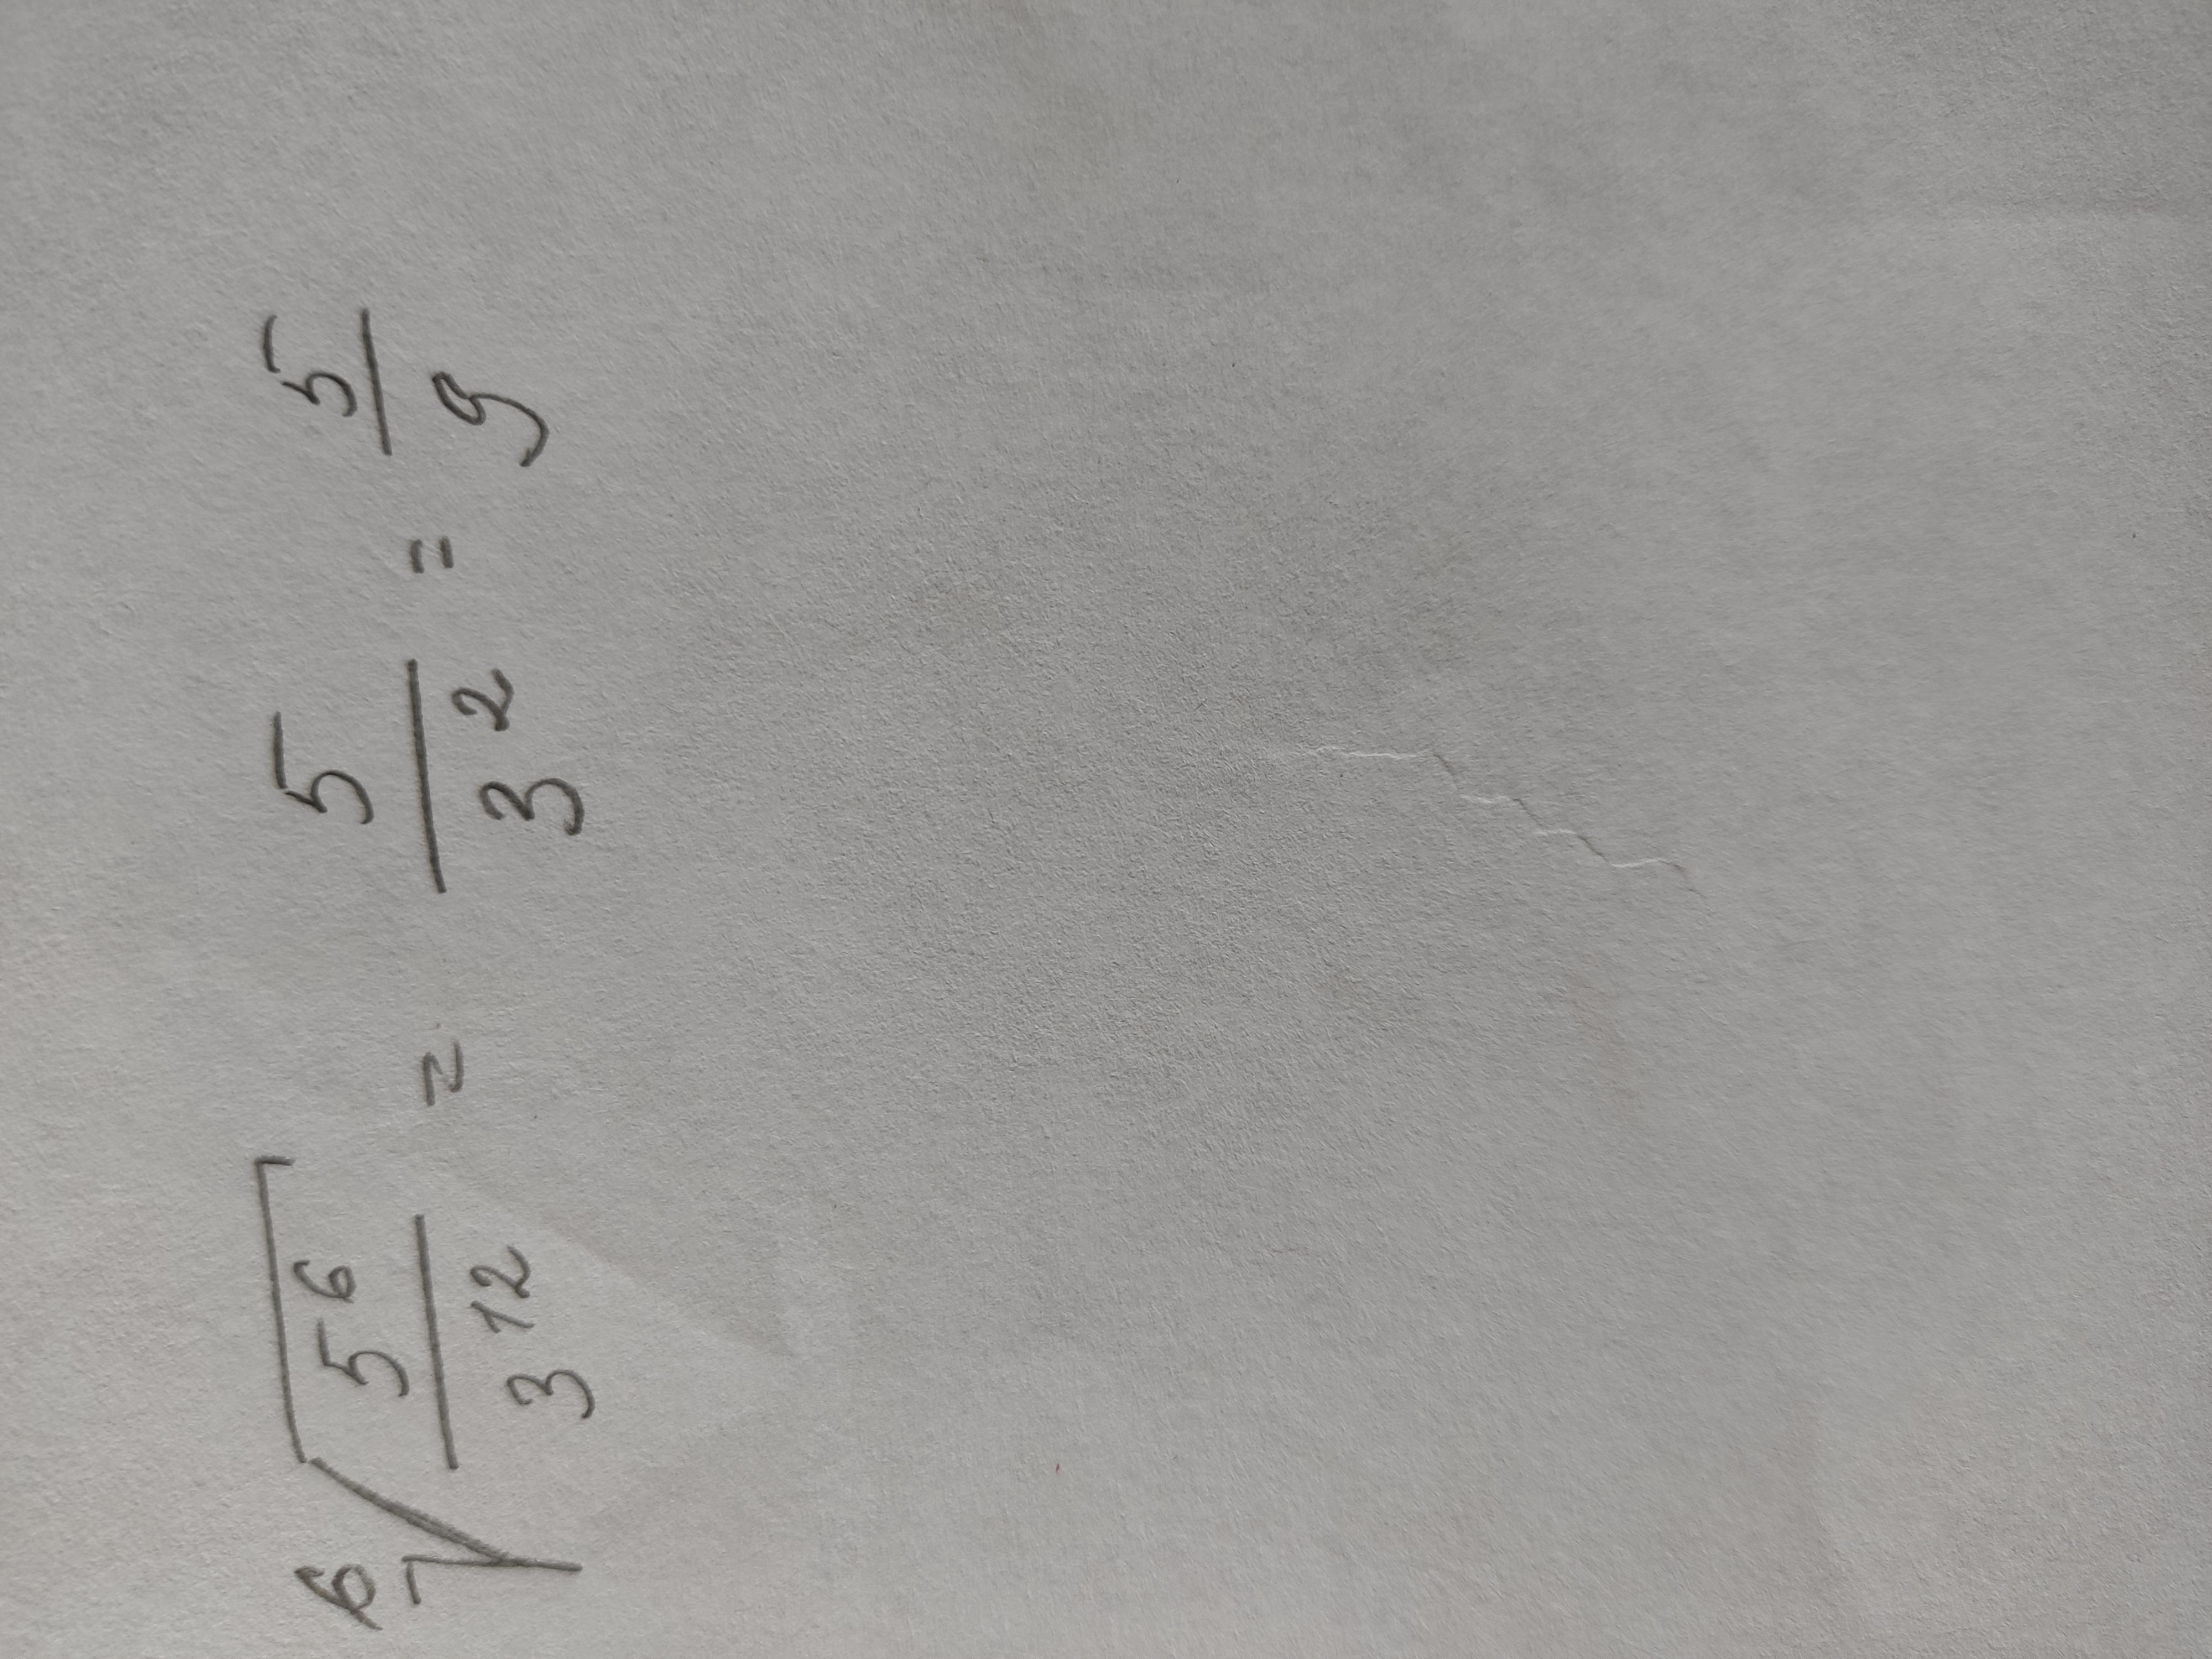 ⁶√(5⁶/3¹²) = 5/3² = 5/9